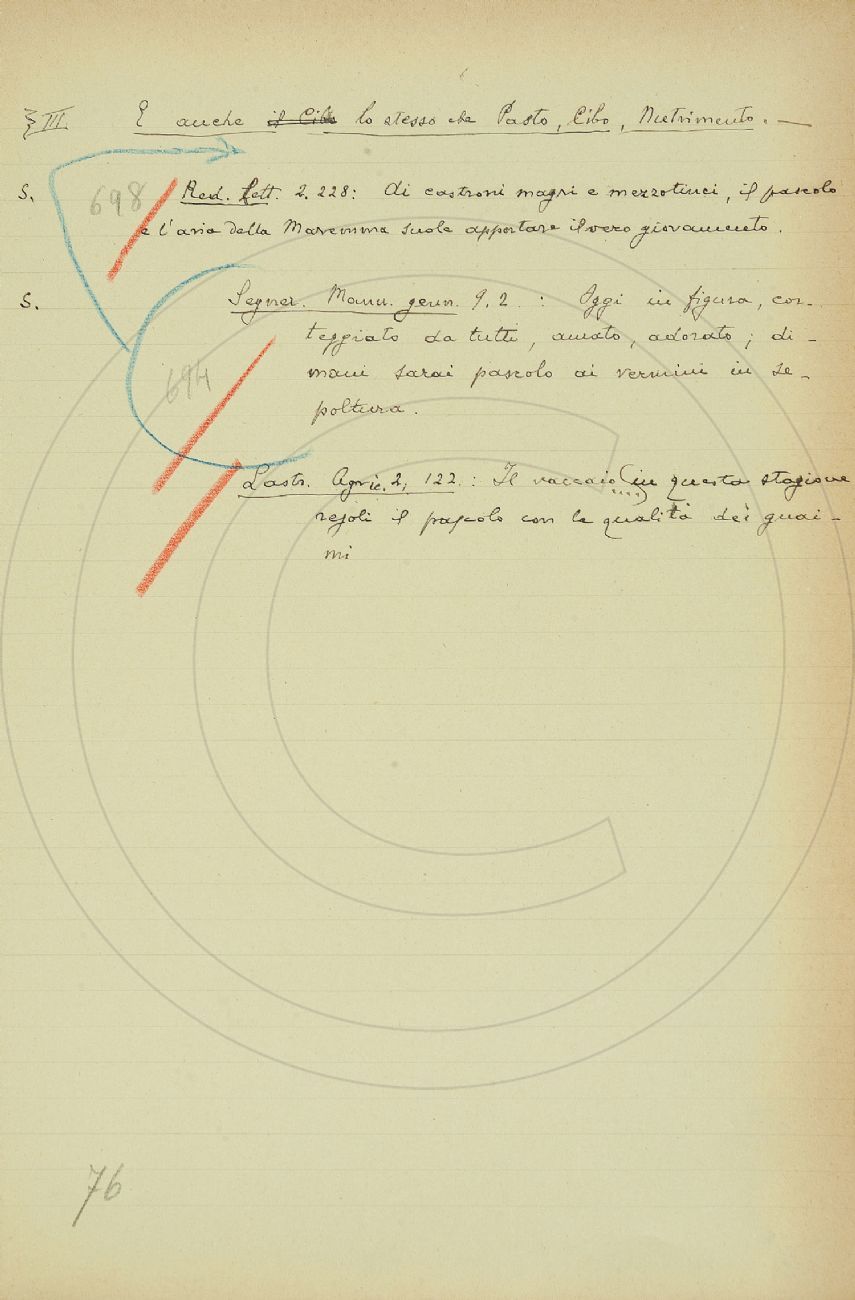 § III. E anche il Cibo lo stesso che Pasto, Cibo, Nutrimento. —
S. 698 Red. Lett. 2. 228: Ai castroni magri e mezzotinci, il pascolo
e l'aria della Maremma suole apportare il vero giovamento.
S. Segner. Mann. genn. 9. 2 : Oggi in figura, cor-
teggiato da tutti, amato, adorato; di-
694 mani sarai pascolo ai vermini in se-
poltura.
Lastr. Agric. 2, 122. : Il vaccaio (in questa stagione
regoli il pascolo con la qualità dei guai-
mi
76